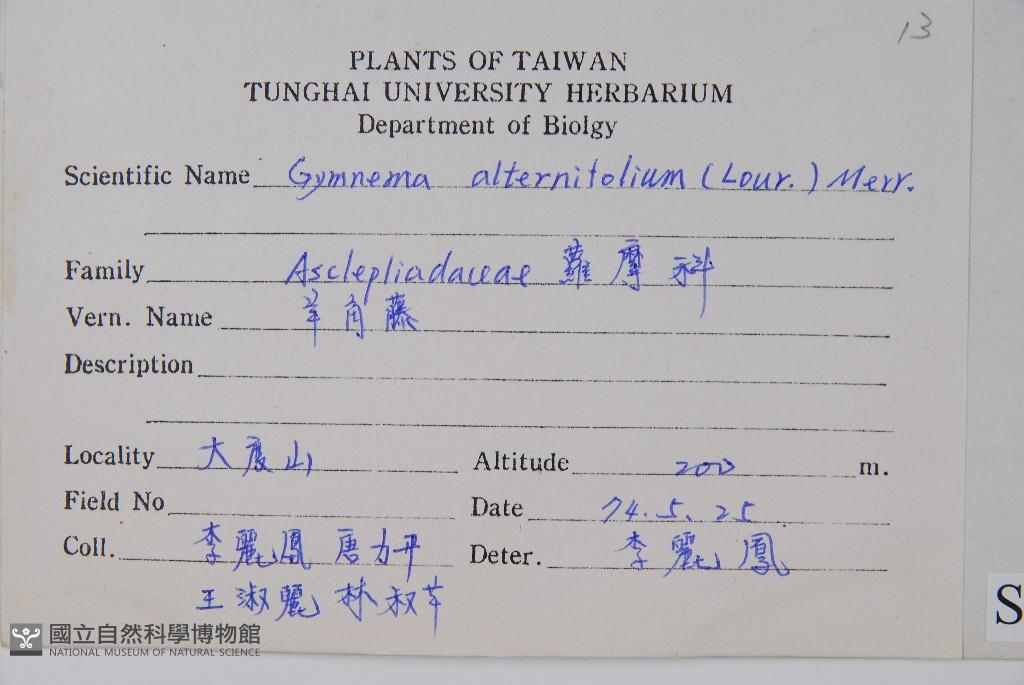 13
PLANTS OF TAIWAN
TUNGHAI UNIVERSITY HERBARIUM
Department of Biolgy
Scientific Name Gymnema alternifolium (Lour.) Merr.
Family Asclepliadaceae 蘿摩科
Vern. Name 羊角藤
Description
Locality 大度山 Altitude 200 m.
Field No Date 74.5.25
Coll. 李麗鳳 唐力丹 Deter. 李麗鳳
王淑麗 林叔
S
國立自然科學博物館
NATIONAL MUSEUM OF NATURAL SCIENCE